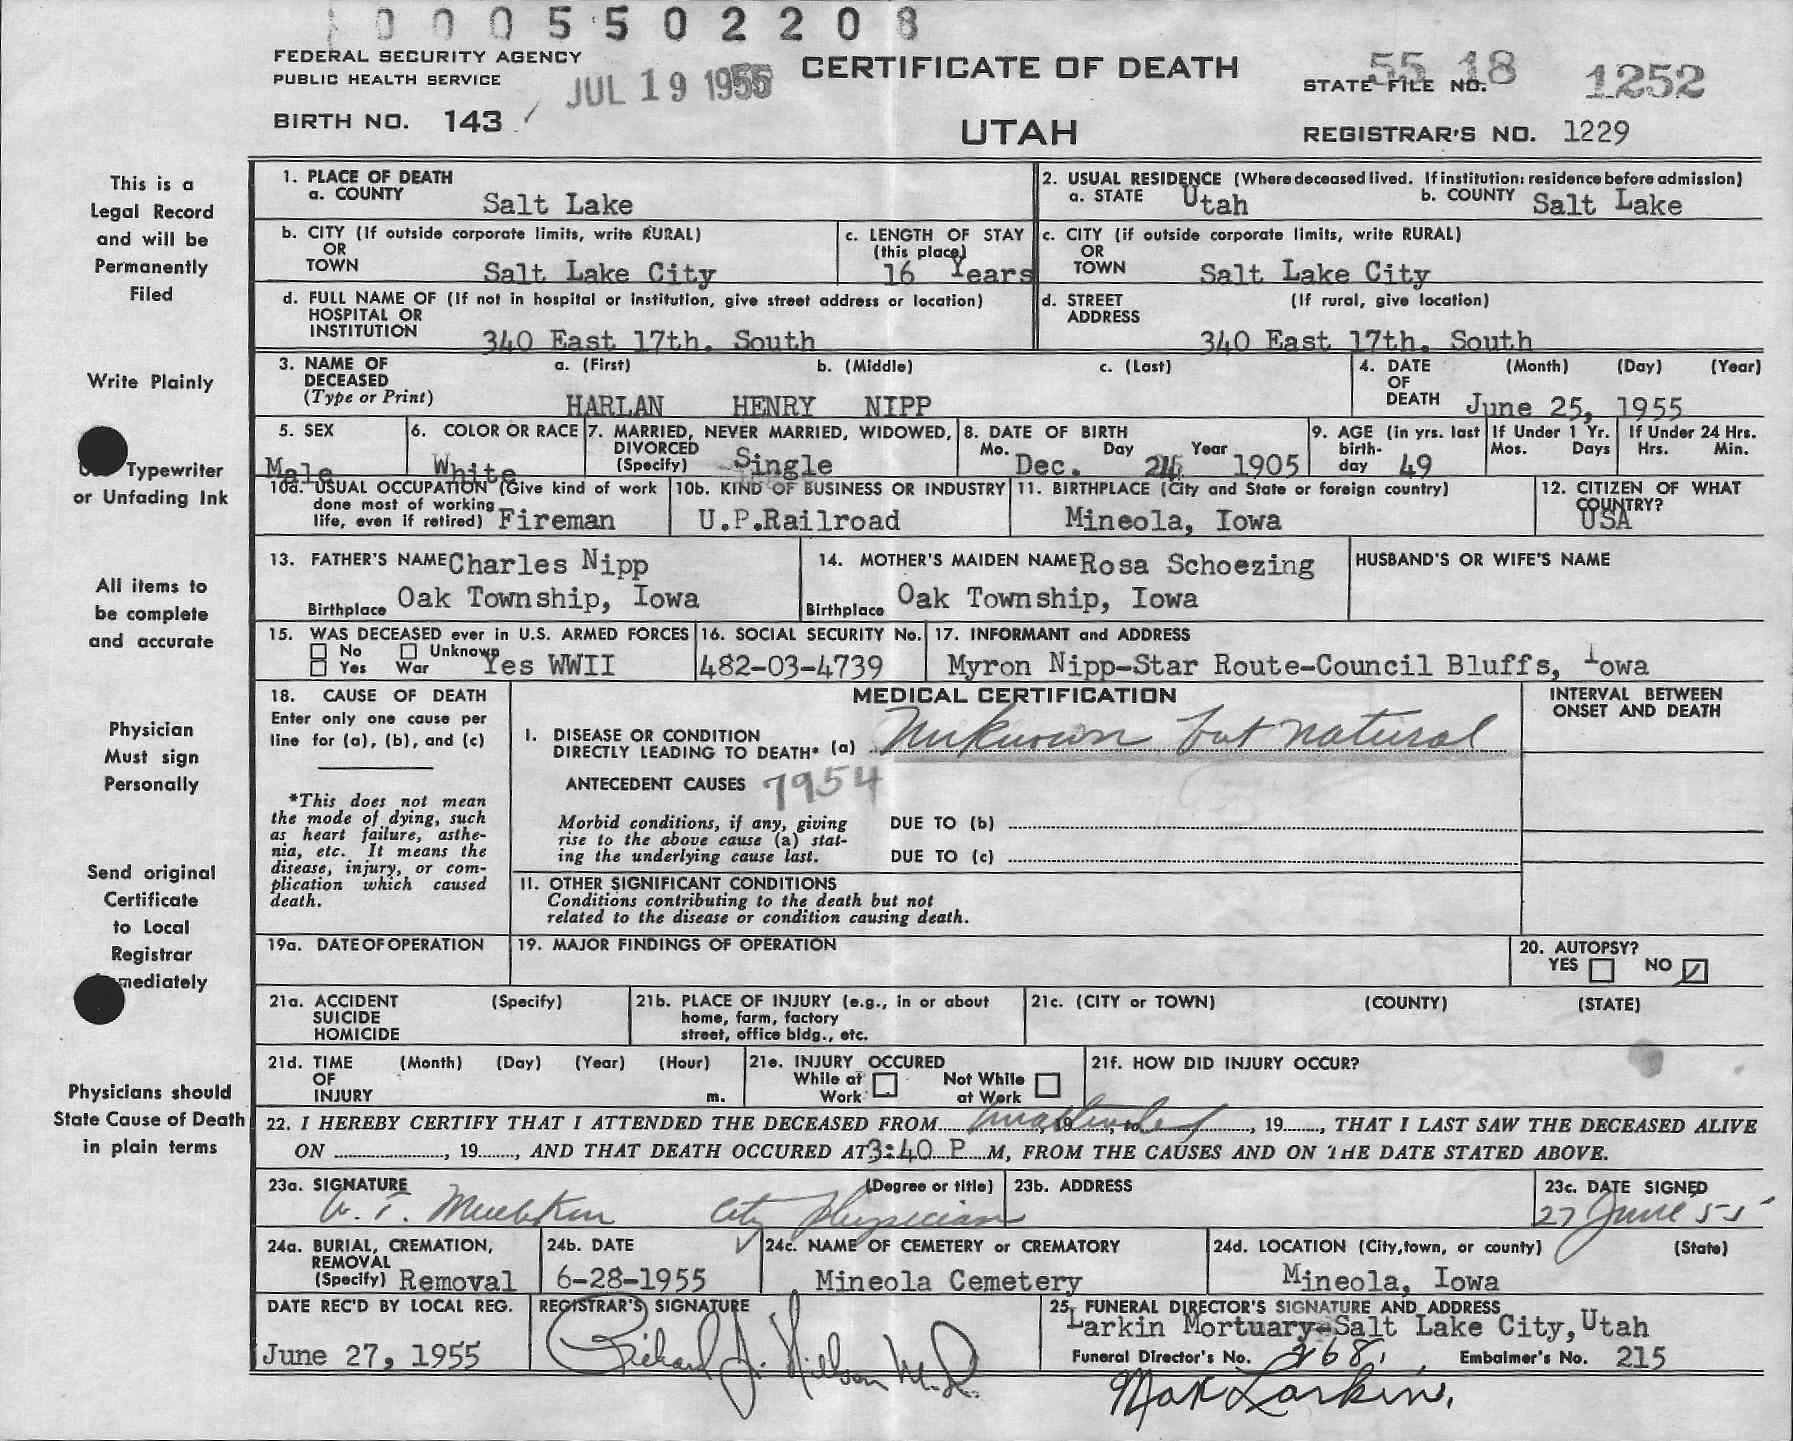 0005502208
FEDERAL SECURITY AGENCY
PUBLIC HEALTH SERVICE
JUL 19 1955
CERTIFICATE OF DEATH
STATE FILE NO. 55 18 1252
BIRTH NO. 143
UTAH
REGISTRAR'S NO. 1229
This is a
Legal Record
and will be
Permanently
Filed
Write Plainly
Typewriter
or Unfading Ink
All items to
be complete
and accurate
Physician
Must sign
Personally
Send original
Certificate
to Local
Registrar
mediately
Physicians should
State Cause of Death
in plain terms
1. PLACE OF DEATH
a. COUNTY Salt Lake
2. USUAL RESIDENCE (Where deceased lived. If institution: residence before admission)
a. STATE Utah b. COUNTY Salt Lake
b. CITY (If outside corporate limits, write RURAL)
OR
TOWN Salt Lake City
c. LENGTH OF STAY
(this place)
16 Years
c. CITY (if outside corporate limits, write RURAL)
OR
TOWN Salt Lake City
d. FULL NAME OF (If not in hospital or institution, give street address or location)
HOSPITAL OR
INSTITUTION 340 East 17th. South
d. STREET (If rural, give location)
ADDRESS
340 East 17th. South
3. NAME OF DECEASED (Type or Print)
a. (First) b. (Middle) c. (Last)
HARLAN HENRY NIPP
4. DATE OF DEATH (Month) (Day) (Year)
June 25, 1955
5. SEX
Male
6. COLOR OR RACE
White
7. MARRIED, NEVER MARRIED, WIDOWED,
DIVORCED
(Specify) Single
8. DATE OF BIRTH
Mo. Dec. Day Year 1905
9. AGE (in yrs. last
birth-
day 49
If Under 1 Yr.
Mos. Days
If Under 24 Hrs.
Hrs. Min.
10a. USUAL OCCUPATION (Give kind of work
done most of working
life, even if retired) Fireman
10b. KIND OF BUSINESS OR INDUSTRY
U.P.Railroad
11. BIRTHPLACE (City and State or foreign country)
Mineola, Iowa
12. CITIZEN OF WHAT
COUNTRY?
USA
13. FATHER'S NAME Charles Nipp
Birthplace Oak Township, Iowa
14. MOTHER'S MAIDEN NAME Rosa Schoezing
Birthplace Oak Township, Iowa
HUSBAND'S OR WIFE'S NAME
15. WAS DECEASED ever in U.S. ARMED FORCES
No Unknown
Yes War Yes WWII
16. SOCIAL SECURITY No.
482-03-4739
17. INFORMANT and ADDRESS
Myron Nipp-Star Route-Council Bluffs, Iowa
18. CAUSE OF DEATH
Enter only one cause per
line for (a), (b), and (c)
*This does not mean
the mode of dying, such
as heart failure, asthe-
nia, etc. It means the
disease, injury, or com-
plication which caused
death.
MEDICAL CERTIFICATION
I. DISEASE OR CONDITION
DIRECTLY LEADING TO DEATH* (a) Unknown but natural
ANTECEDENT CAUSES 7954
Morbid conditions, if any, giving
rise to the above cause (a) stat-
ing the underlying cause last.
DUE TO (b)
DUE TO (c)
II. OTHER SIGNIFICANT CONDITIONS
Conditions contributing to the death but not
related to the disease or condition causing death.
INTERVAL BETWEEN
ONSET AND DEATH
19a. DATE OF OPERATION
19. MAJOR FINDINGS OF OPERATION
20. AUTOPSY?
YES NO
21a. ACCIDENT (Specify)
SUICIDE
HOMICIDE
21b. PLACE OF INJURY (e.g., in or about
home, farm, factory
street, office bldg., etc.
21c. (CITY or TOWN) (COUNTY) (STATE)
21d. TIME (Month) (Day) (Year) (Hour)
OF
INJURY m.
21e. INJURY OCCURED
While at Work
Not While at Work
21f. HOW DID INJURY OCCUR?
22. I HEREBY CERTIFY THAT I ATTENDED THE DECEASED FROM Unattended, 19, to, 19, THAT I LAST SAW THE DECEASED ALIVE
ON, 19, AND THAT DEATH OCCURED AT 3:40 P M, FROM THE CAUSES AND ON THE DATE STATED ABOVE.
23a. SIGNATURE (Degree or title)
City Physician
23b. ADDRESS
23c. DATE SIGNED
27 June 55
24a. BURIAL, CREMATION,
REMOVAL
(Specify) Removal
24b. DATE
6-28-1955
24c. NAME OF CEMETERY or CREMATORY
Mineola Cemetery
24d. LOCATION (City, town, or county) (State)
Mineola, Iowa
DATE REC'D BY LOCAL REG.
June 27, 1955
REGISTRAR'S SIGNATURE
Richard J. Nilson M.D.
25. FUNERAL DIRECTOR'S SIGNATURE AND ADDRESS
Larkin Mortuary-Salt Lake City, Utah
Funeral Director's No. 268 Embalmer's No. 215
Max Larkin